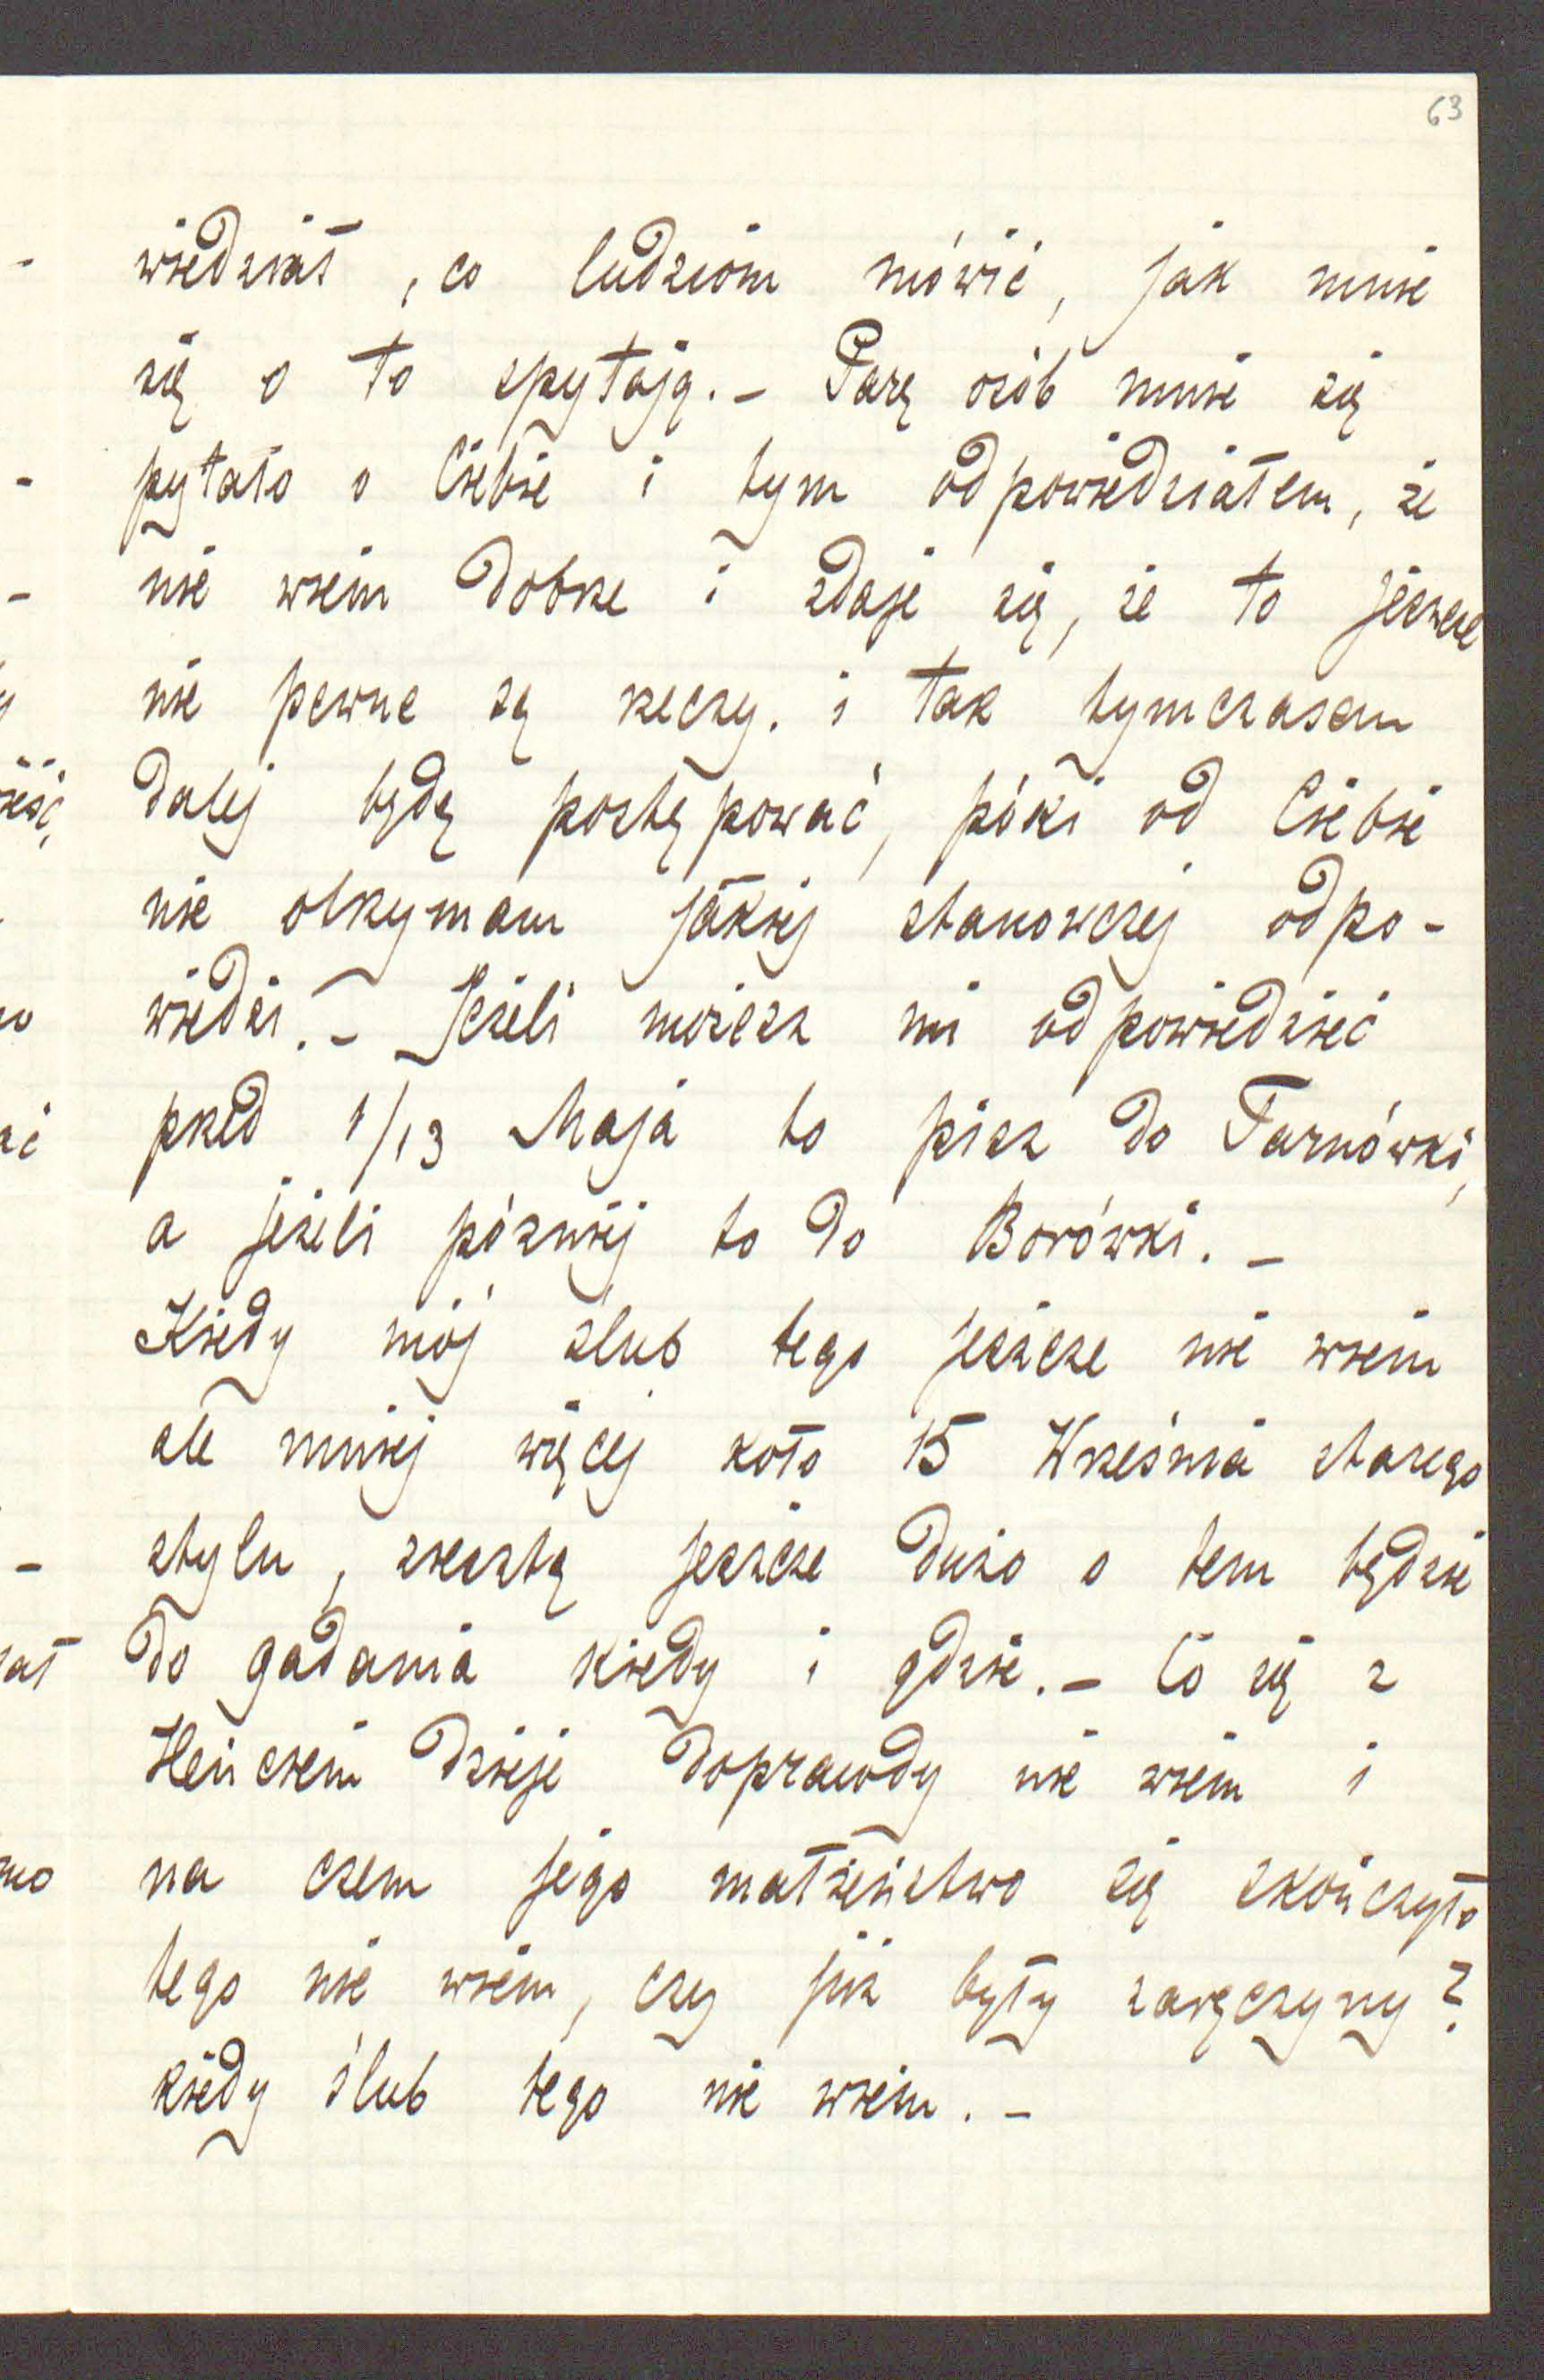 63
wiedział, co ludziom mówić, jak mnie
się o to spytają. – Parę osób mnie się
pytało o Ciebie i tym odpowiedziałem, że
nie wiem dobrze i zdaje się, że to jeszcze
nie pewne są rzeczy. i tak tymczasem
dalej będę postępować, póki od Ciebie
nie otrzymam jakiej stanowczej odpo-
wiedzi. – Jeżeli możesz mi odpowiedzieć
przed 1/13 Maja to pisz do Tarnówki,
a jeżeli później to do Borówki. –
Kiedy mój ślub tego jeszcze nie wiem
ale mniej więcej koło 15 Września starego
stylu, zresztą jeszcze dużo o tem będzie
do gadania kiedy i gdzie. – Co się z
Heńciem dzieje doprawdy nie wiem i
na czem jego małżeństwo się skończyło
tego nie wiem, czy już były zaręczyny?
kiedy ślub tego nie wiem. –